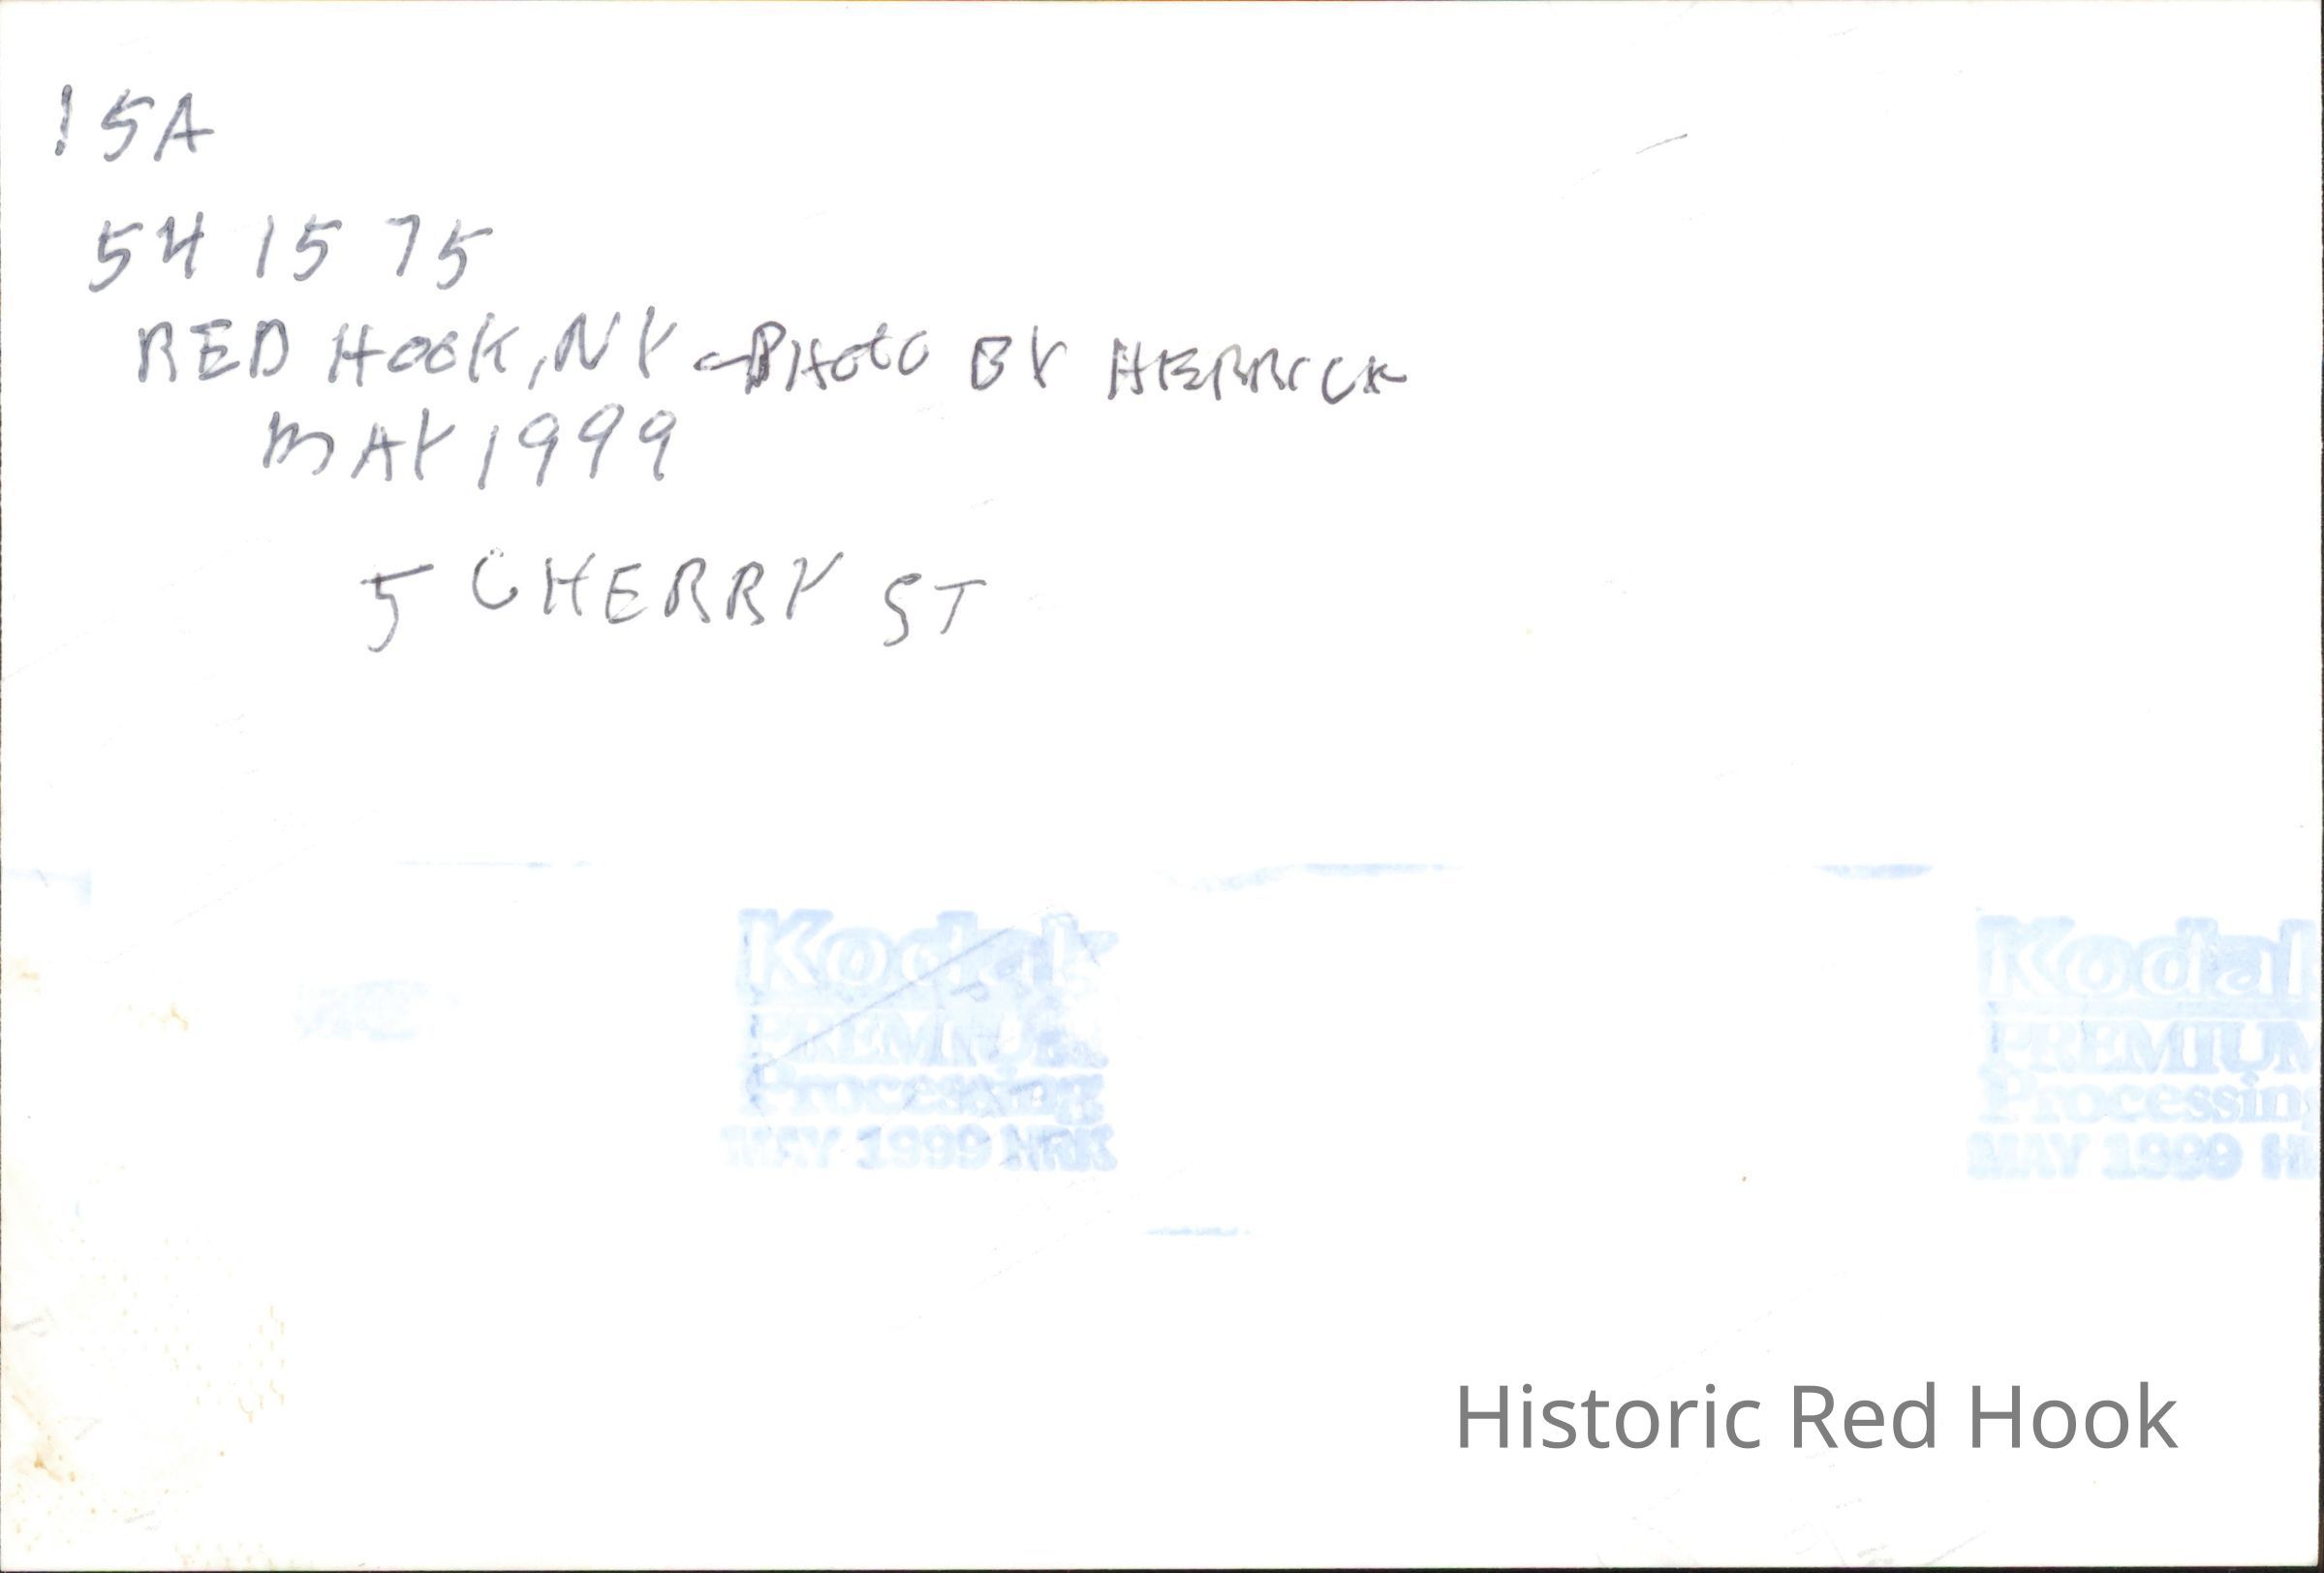 15A
54 15 75
RED HOOK, NY - PHOTO BY HERRICK
MAY 1999
5 CHERRY ST
Kodak
PREMIUM
Processing
MAY 1999 HRK
Kodak
PREMIUM
Processing
MAY 1999 H
Historic Red Hook